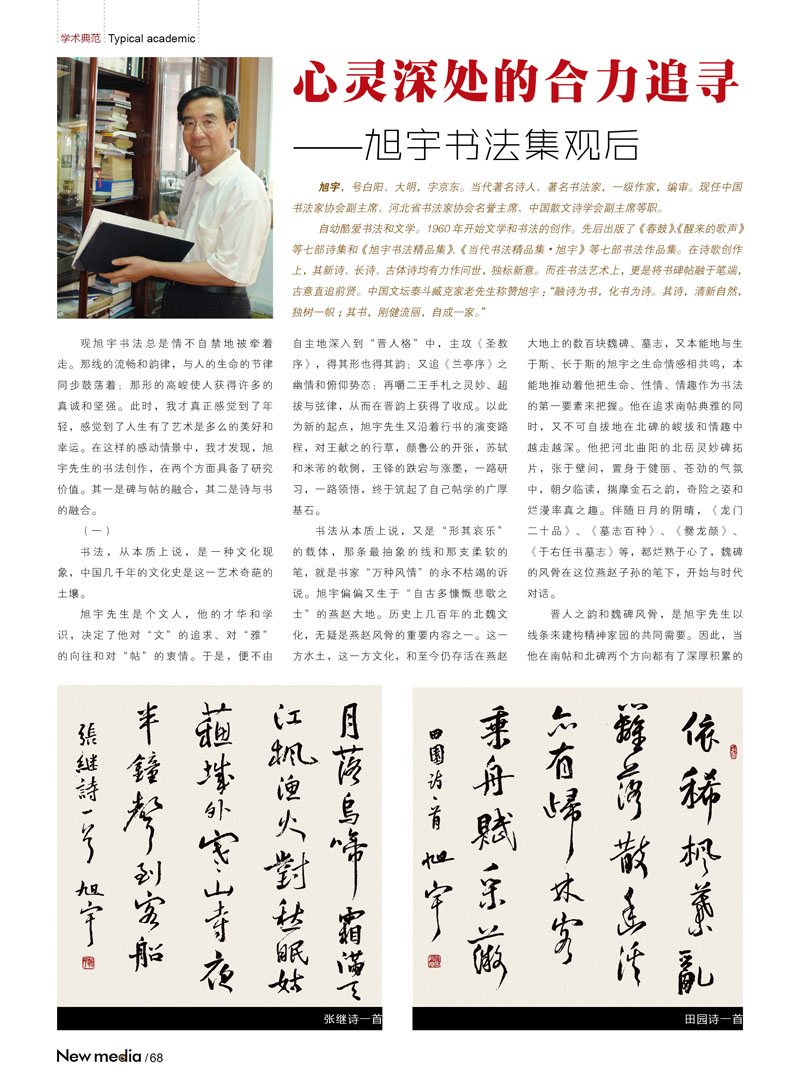 学术典范 Typical academic
心灵深处的合力追寻
——旭宇书法集观后
旭宇，号白阳、大明，字京东。当代著名诗人、著名书法家，一级作家，编审。现任中国
书法家协会副主席、河北省书法家协会名誉主席、中国散文诗学会副主席等职。
自幼酷爱书法和文学。1960年开始文学和书法的创作。先后出版了《春鼓》、《醒来的歌声》
等七部诗集和《旭宇书法精品集》、《当代书法精品集·旭宇》等七部书法作品集。在诗歌创作
上，其新诗、长诗、古体诗均有力作问世，独标新意。而在书法艺术上，更是将书碑帖融于笔端，
古意直追前贤。中国文坛泰斗臧克家老先生称赞旭宇：“融诗为书，化书为诗。其诗，清新自然，
独树一帜；其书，刚健流丽，自成一家。”
观旭宇书法总是情不自禁地被牵着
走。那线的流畅和韵律，与人的生命的节律
同步鼓荡着；那形的高峻使人获得许多的
真诚和坚强。此时，我才真正感觉到了年
轻，感觉到了人生有了艺术是多么的美好和
幸运。在这样的感动情景中，我才发现，旭
宇先生的书法创作，在两个方面具备了研究
价值。其一是碑与帖的融合，其二是诗与书
的融合。
（一）
书法，从本质上说，是一种文化现
象，中国几千年的文化史是这一艺术奇葩的
土壤。
旭宇先生是个文人，他的才华和学
识，决定了他对“文”的追求、对“雅”
的向往和对“帖”的衷情。于是，便不由
自主地深入到“晋人格”中，主攻《圣教
序》，得其形也得其韵；又追《兰亭序》之
幽情和俯仰势态；再嚼二王手札之灵妙、超
拔与弦律，从而在晋韵上获得了收成。以此
为新的起点，旭宇先生又沿着行书的演变路
程，对王献之的行草，颜鲁公的开张，苏轼
和米芾的欹侧，王铎的跌宕与涨墨，一路研
习，一路领悟，终于筑起了自己帖学的广厚
基石。
书法从本质上说，又是“形其哀乐”
的载体，那条最抽象的线和那支柔软的
笔，就是书家“万种风情”的永不枯竭的诉
说。旭宇偏偏又生于“自古多慷慨悲歌之
士”的燕赵大地。历史上几百年的北魏文
化，无疑是燕赵风骨的重要内容之一。这一
方水土，这一方文化，和至今仍存活在燕赵
大地上的数百块魏碑、墓志，又本能地与生
于斯、长于斯的旭宇之生命情感相共鸣，本
能地推动着他把生命、性情、情趣作为书法
的第一要素来把握。他在追求南帖典雅的同
时，又不可自拔地在北碑的峻拔和情趣中
越走越深。他把河北曲阳的北岳灵妙碑拓
片，张于壁间，置身于健丽、苍劲的气氛
中，朝夕临读，揣摩金石之韵，奇险之姿和
烂漫率真之趣。伴随日月的阴晴，《龙门
二十品》、《墓志百种》、《爨龙颜》、
《于右任书墓志》等，都烂熟于心了，魏碑
的风骨在这位燕赵子孙的笔下，开始与时代
对话。
晋人之韵和魏碑风骨，是旭宇先生以
线条来建构精神家园的共同需要。因此，当
他在南帖和北碑两个方向都有了深厚积累的
月落乌啼霜满天
江枫渔火對愁眠姑
蘇城外寒山寺夜
半鐘聲到客船
張继詩一首 旭宇
张继诗一首
依稀枫葉亂
籬落散幽溪
亦有歸林客
乘舟賦采薇
田園诗一首 旭宇
田园诗一首
New media /68